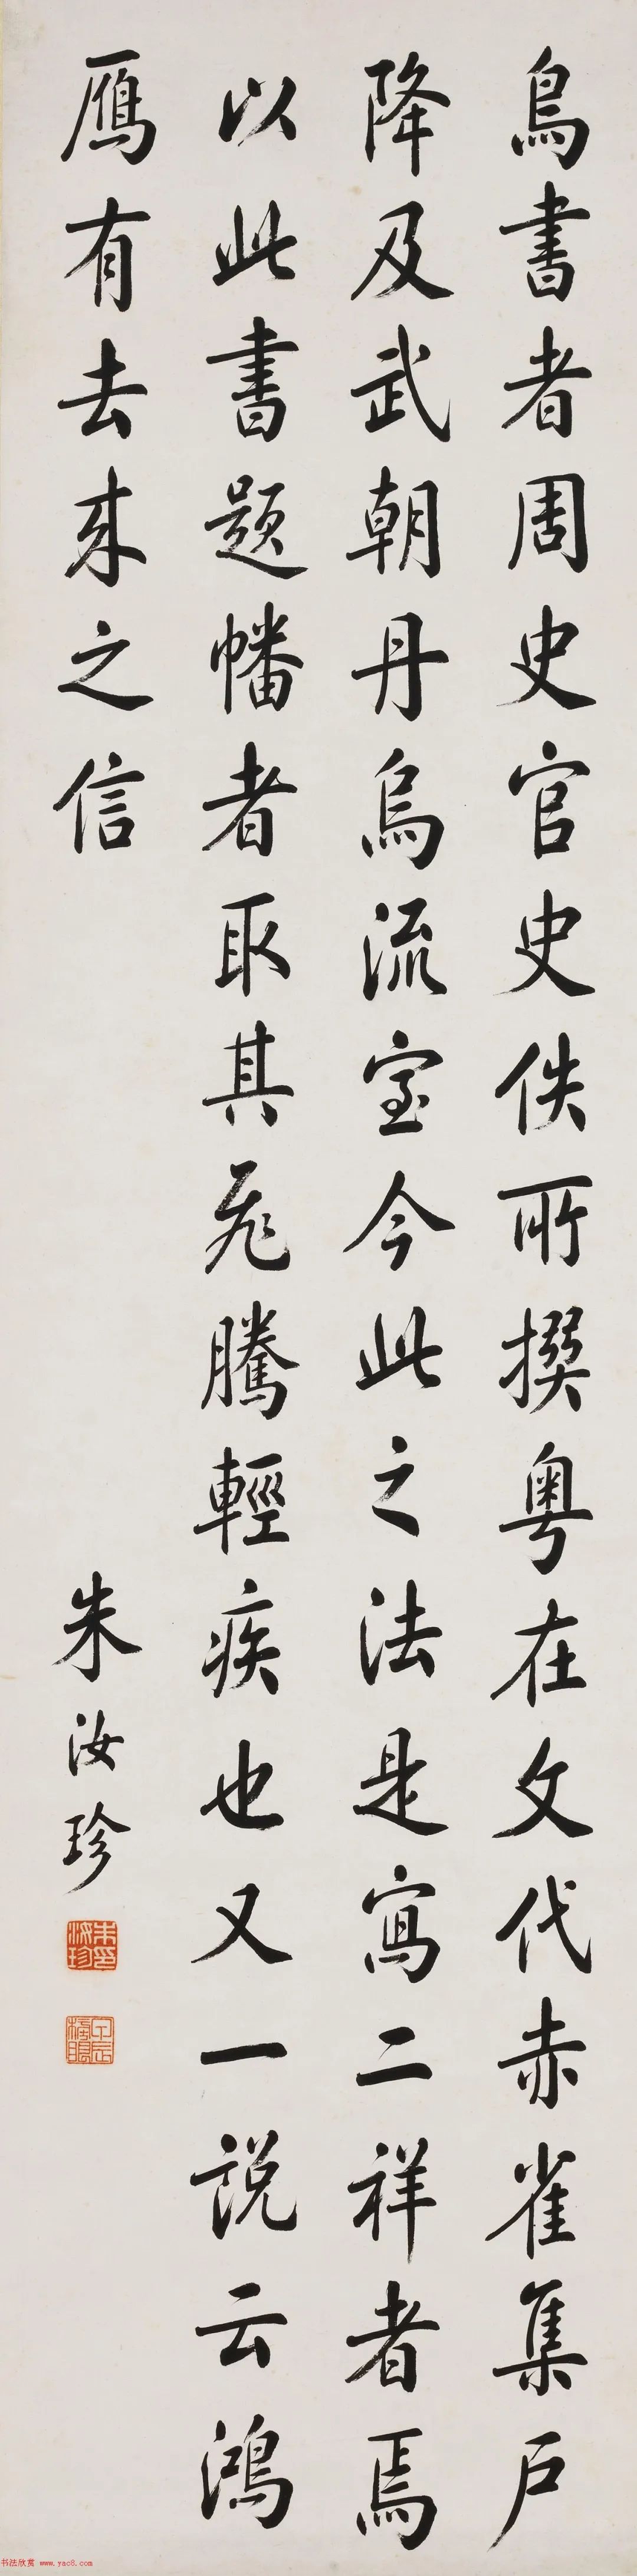 鳥書者周史官史佚所撰粵在文代赤雀集戶
降及武朝丹烏流室今此之法是寫二祥者焉
以此書題幡者取其飛騰輕疾也又一說云鴻
鴈有去來之信
朱汝珍
朱汝珍印
甲辰榜眼
书法欣赏 www.yac8.com